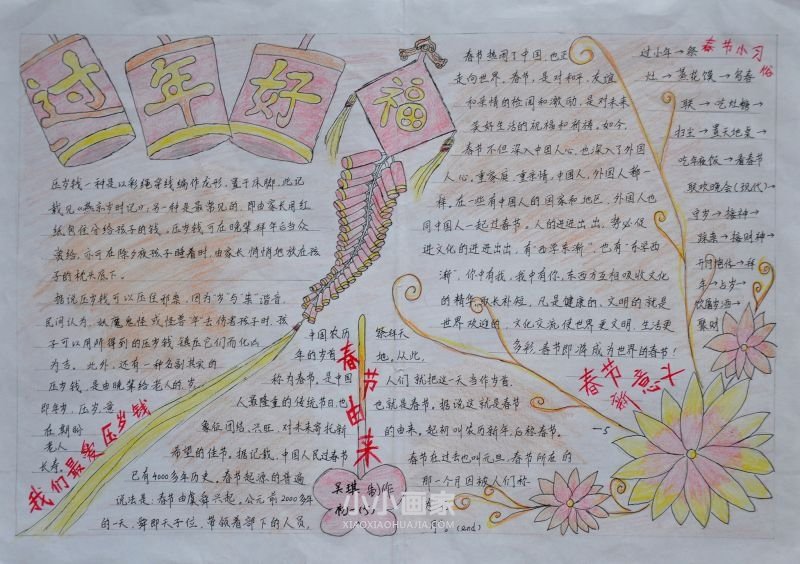 过年好
福
压岁钱一种是以彩绳穿线编作龙形,置于床脚。此记
载见《燕京岁时记》;另一种是最常见的,即由家长用红
纸包住分给孩子的钱。压岁钱可在晚辈拜年后当众
赏给,亦可在除夕夜孩子睡着时,由家长悄悄地放在孩
子的枕头底下。
据说压岁钱可以压住邪祟,因为"岁"与"祟"谐音,
民间认为,妖魔鬼怪或"怪兽年"去伤害孩子时,孩
子可以用所得到的压岁钱镇住它们而化凶
为吉。此外,还有一种名副其实的
压岁钱,是由晚辈给老人的。
即年岁。压岁,意
在期盼
老人
长寿。
我们最爱压岁钱
中国农历
年的岁首
称为春节。是中国
人最隆重的传统节日,也
象征团结、兴旺,对未来寄托新
希望的佳节。据记载,中国人民过春节
已有4000多年历史。春节起源的普遍
说法是:春节由虞舜兴起。公元前2000多年
的一天,舜即天子位,带领着部下的人员,
春节由来
祭拜天
地。从此,
人们就把这一天当作岁首。
也就是春节。据说这就是春节
的由来。起初叫农历新年,后称春节。
春节在过去也叫元旦。春节所在的
那一个月因被人们称
(end)
吴琪 制作
春节热闹了中国,也正
走向世界。春节,是对和平、友谊
和亲情的检阅和激励,是对未来
美好生活的祝福和祈祷。如今,
春节不但深入中国人心,也深入了外国
人心。重家庭、重亲情,中国人、外国人都一
样。在一些有中国人的国家和地区,外国人也
同中国人一起过春节。人的进进出出,势必促
进文化的进进出出,有"西学东渐",也有"东学西
渐",你中有我,我中有你,东西方互相吸收文化
的精华,取长补短,凡是健康的、文明的就是
世界欢迎的。文化交流使世界更文明,生活更
多彩。春节即将成为世界的春节!
春节新意
春节小习俗
过小年→祭
灶→蒸花馍→写春
联→吃灶糖→
扫尘→置天地桌→
吃年夜饭→看春节
联欢晚会(现代)→
守岁→接神→
踩祟→接财神→
开门炮仗→拜
年→占岁→
饮屠苏酒→
聚财
小小画家
XIAOXIAOHUAJIA.COM